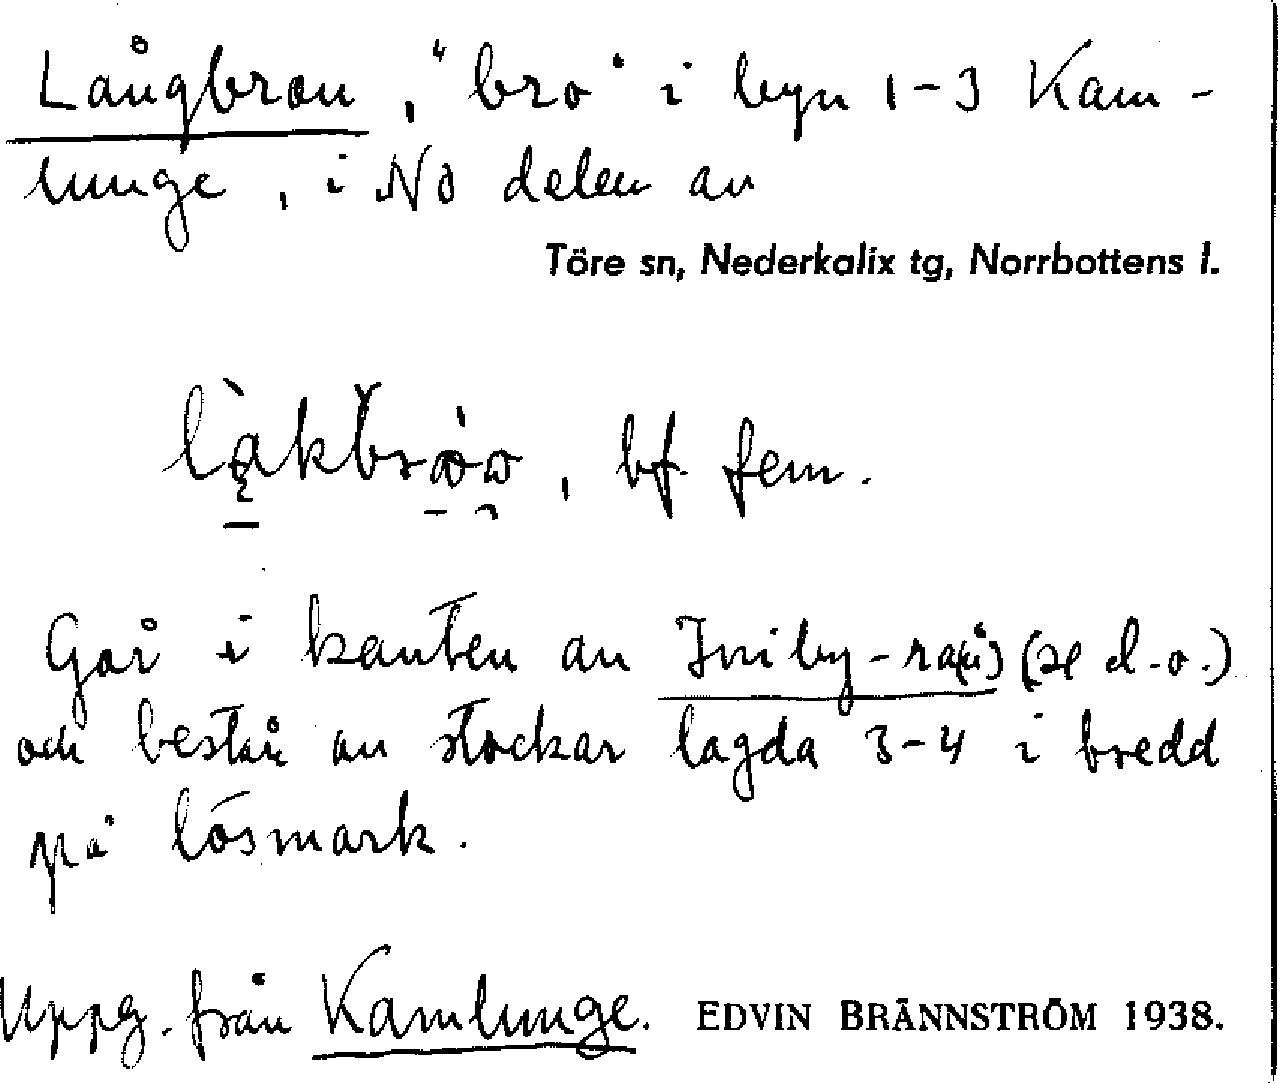 Långbron, "bro" i byn 1-3 Kam-
lunge, i NÖ delen av
Töre sn, Nederkalix tg, Norrbottens l.
bf. fem.
Går i kanten av Inniby-ra(n) (se d.o.)
och består av stockar lagda 3-4 i bredd
på lösmark.
Uppg. från Kamlunge. EDVIN BRÄNNSTRÖM 1938.